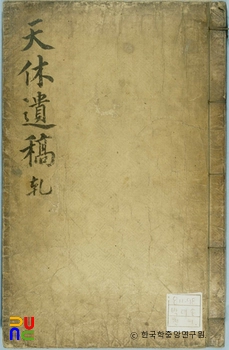 天休遺稿
乾
ⓒ 한국학중앙연구원